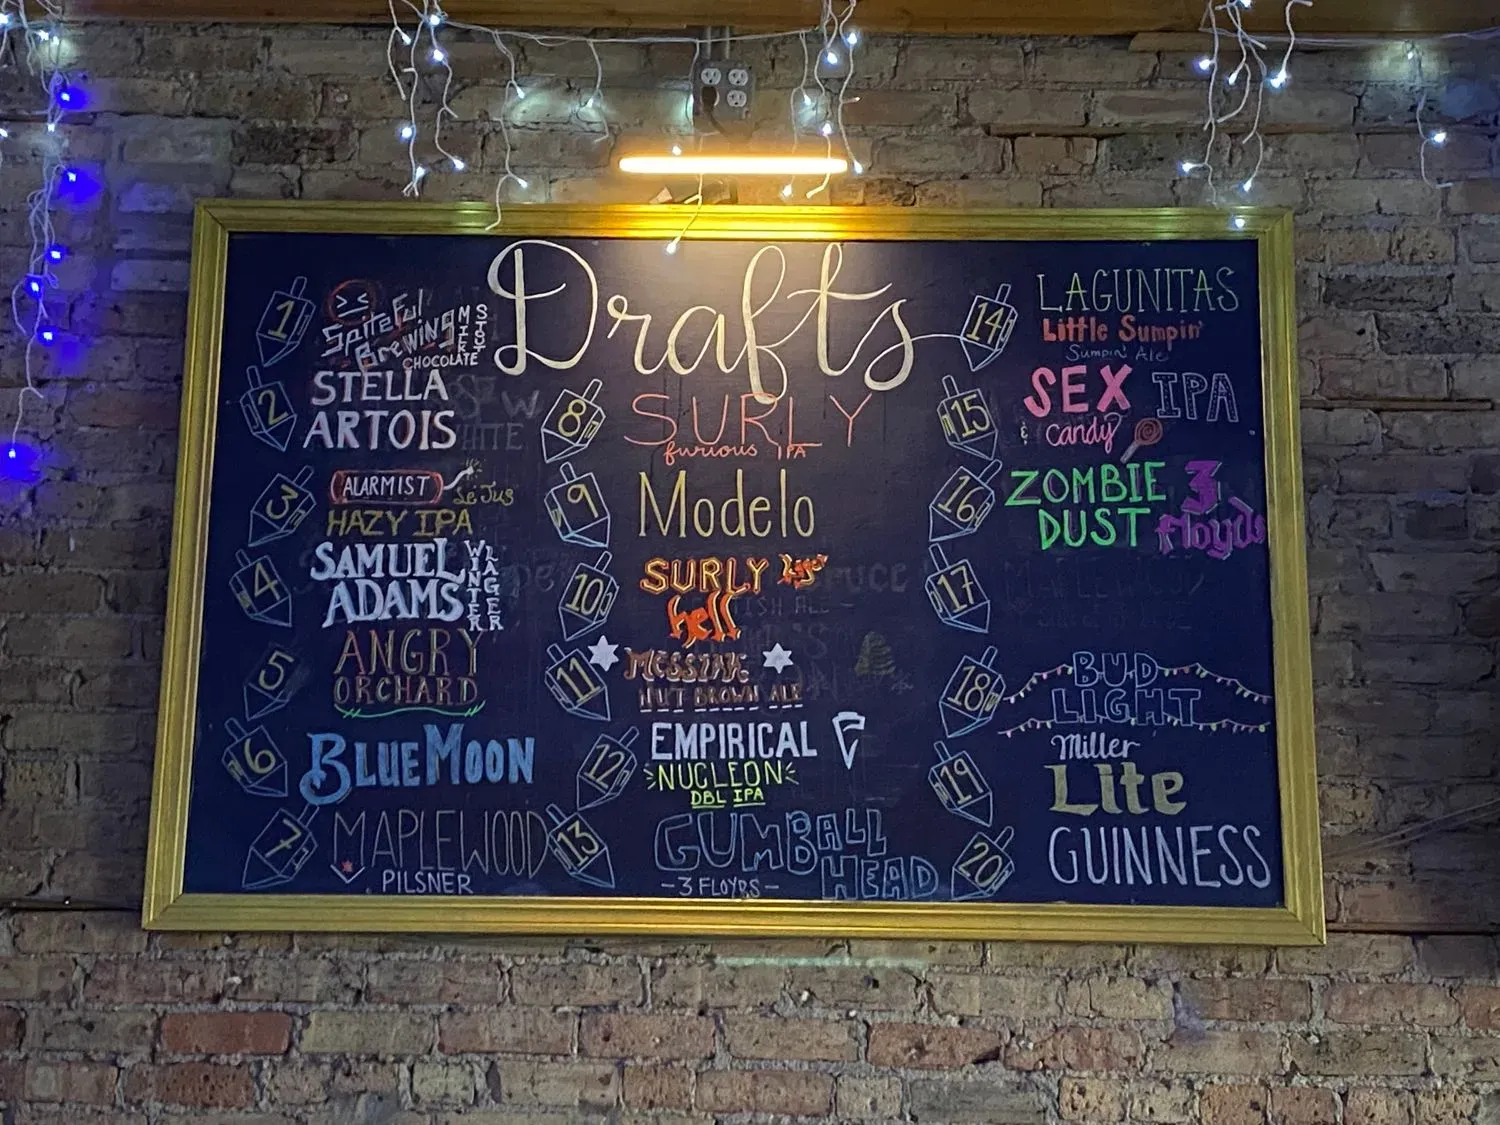 Drafts
1
Spiteful
Brewing
CHOCOLATE
MILK
STOUT
2
STELLA
ARTOIS
3
ALARMIST Le Jus
HAZY IPA
4
SAMUEL
ADAMS
WINTER
LAGER
5
ANGRY
ORCHARD
6
BLUE MOON
7
MAPLEWOOD
PILSNER
8
SURLY
furious IPA
9
Modelo
10
SURLY
hell
11
MESSIAH
NUT BROWN ALE
12
EMPIRICAL
NUCLEON
DBL IPA
13
GUMBALL
HEAD
- 3 FLOYDS -
14
LAGUNITAS
Little Sumpin'
Sumpin' Ale
15
SEX IPA
& candy
16
ZOMBIE 3
DUST Floyds
17
18
BUD
LIGHT
19
Miller
Lite
20
GUINNESS